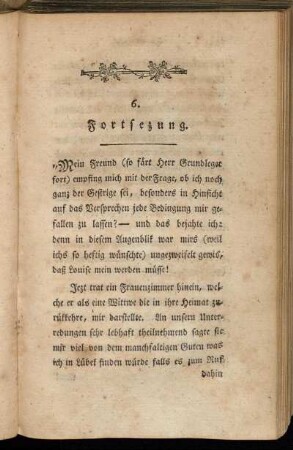 6.
Fortsezung.
„Mein Freund (so färt Herr Grundleger
fort) empfing mich mit der Frage, ob ich noch
ganz der Gestrige sei, besonders in Hinsicht
auf das Versprechen jede Bedingung mir ge-
fallen zu lassen? — und das bejahte ich:
denn in diesem Augenblik war mirs (weil
ichs so heftig wünschte) ungezweifelt gewis,
daß Louise mein werden müsse!
Jezt trat ein Frauenzimmer hinein, wel-
che er als eine Wittwe die in ihre Heimat zu-
rükkehre, mir darstellte. An unsern Unter-
redungen sehr lebhaft theilnehmend sagte sie
mit viel von dem manchfaltigen Guten was
ich in Lübek finden würde falls es zum Ruf
dahin